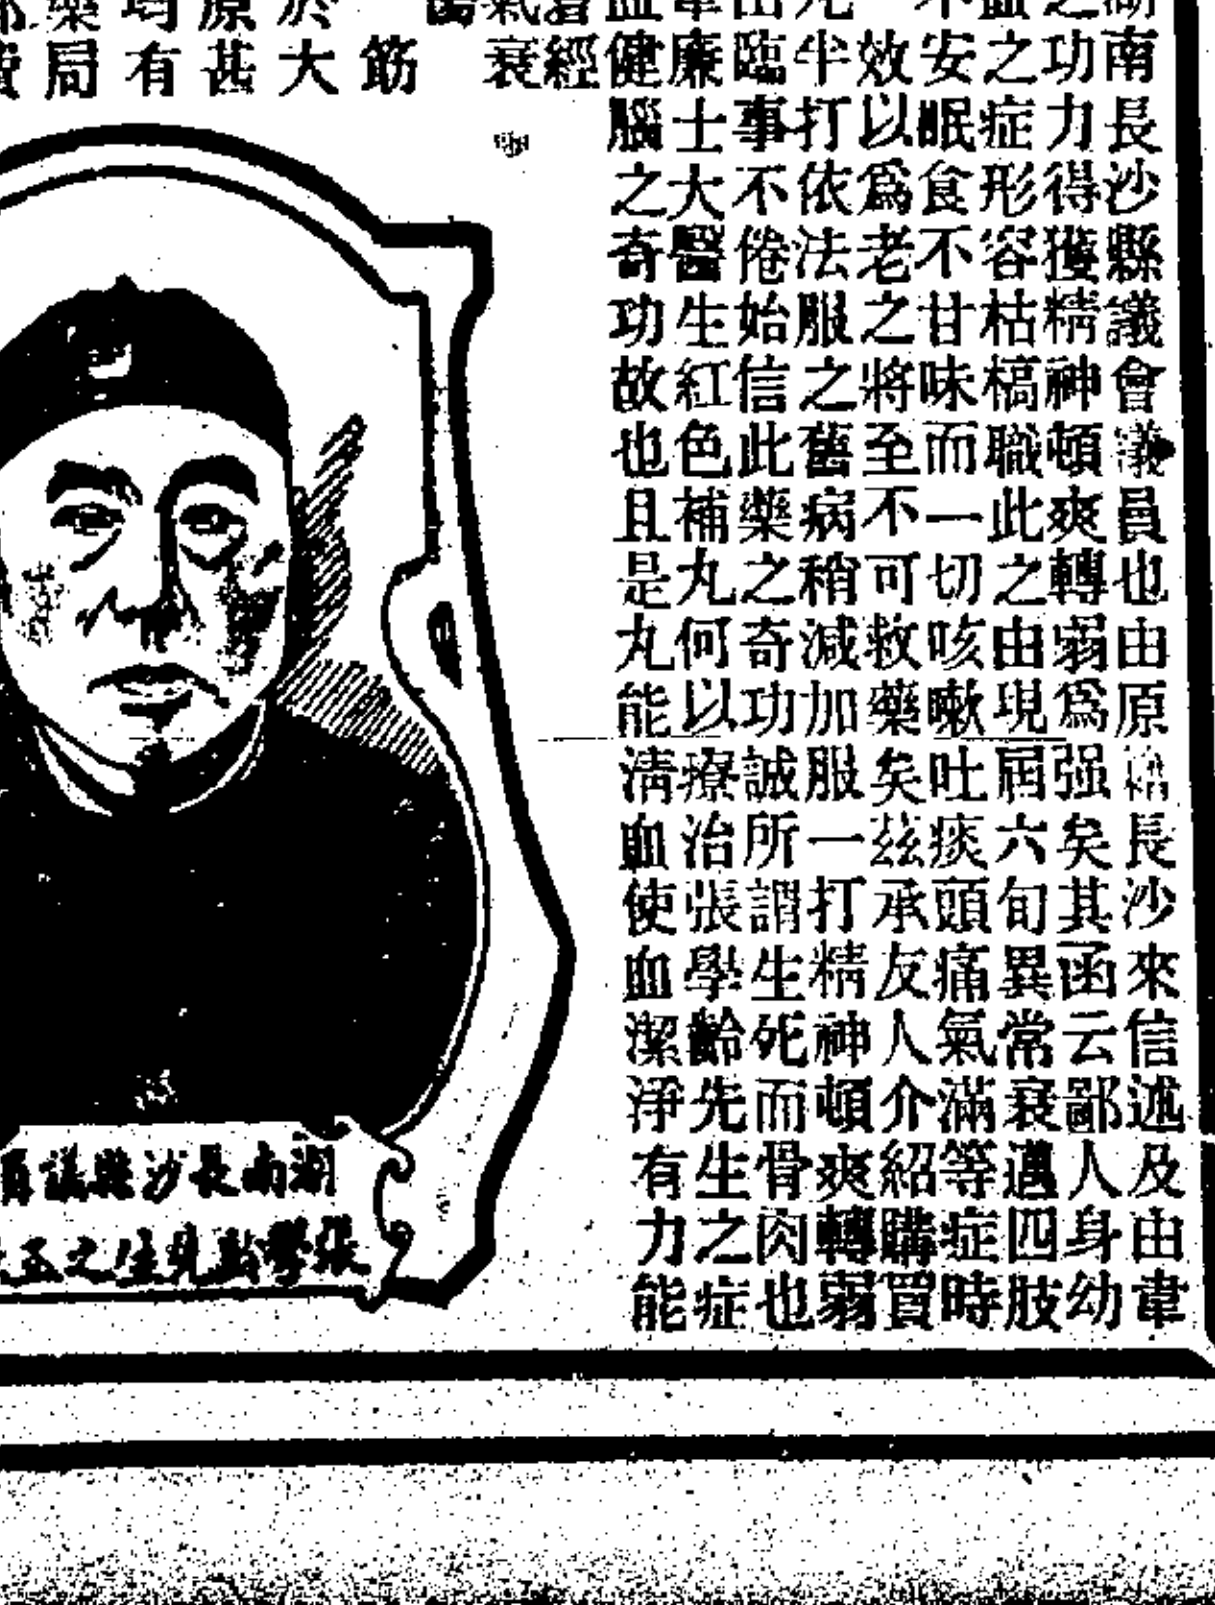 湖南長沙縣議會議員也由原籍長沙來信述及由韋
之功力得獲精神頓爽轉弱爲强矣其函云鄙人身幼
血之症形容枯槁職此之由現屆六旬異常衰邁四肢
不安眠食不甘味而一切咳嗽吐痰頭痛氣滿等症時
效以爲老之將至不可救藥矣茲承友人介紹購買
丸半打依法服之舊病稍減加服一打精神頓爽轉弱
出臨事不倦始信此藥之奇功誠所謂生死而骨肉也
韋廉士大醫生紅色補丸何以療治張學齡先生之症
血健腦之奇功故也且是丸能清血使血潔淨有力能
經
氣衰
筋
於大
原甚
均有
藥局
費
湖南長沙縣議員
張學齡先生之玉